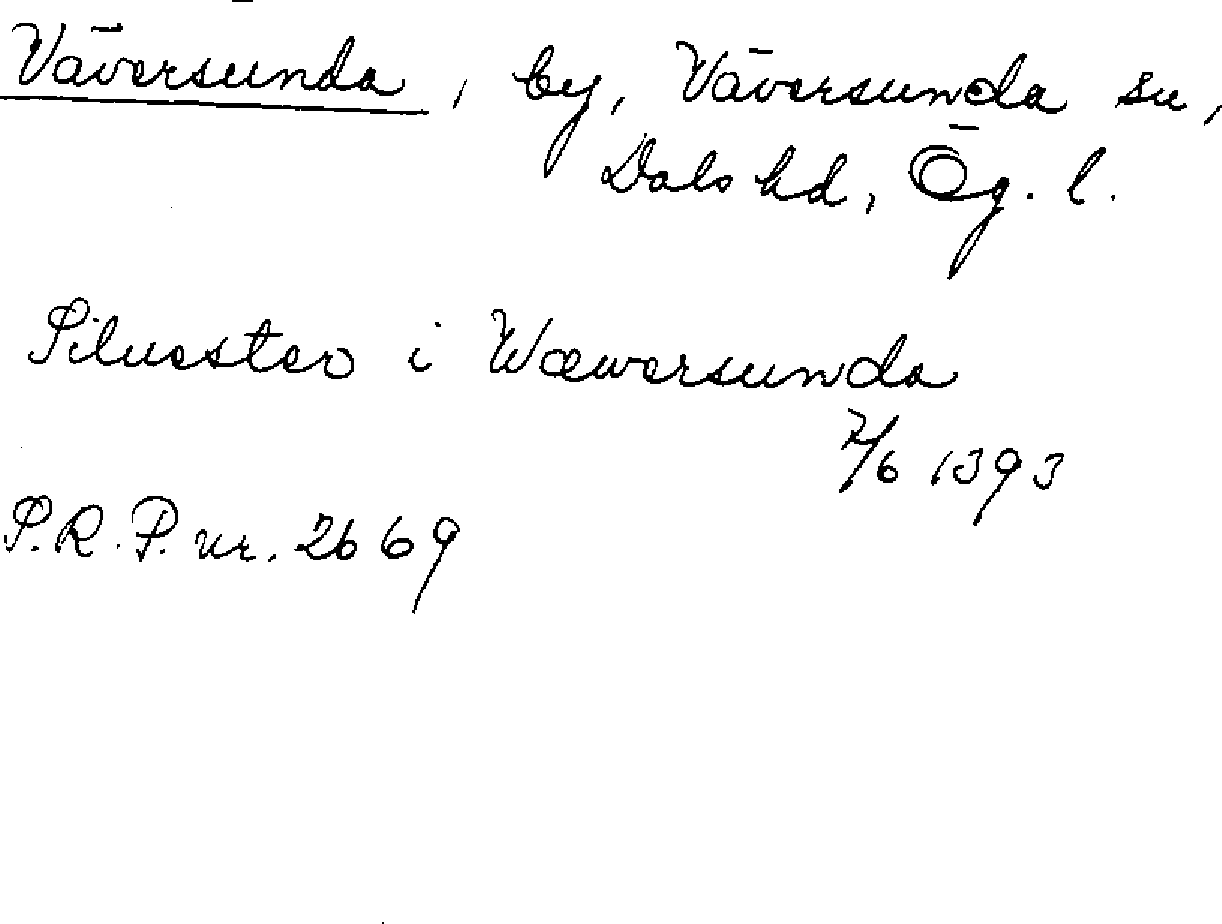 Väversunda, by, Väversunda sn,
Dals hd, Ög. l.
Siluester i Wæwersunda
2/6 1393
S.R.P. nr. 2669